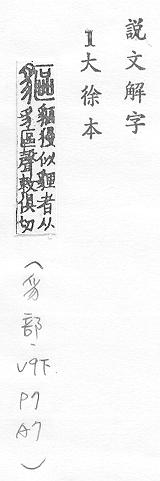 說文解字
1大徐本
貙
貙獌似貍者从
豸區聲敕俱切
（豸部、V9下. P7 A7）